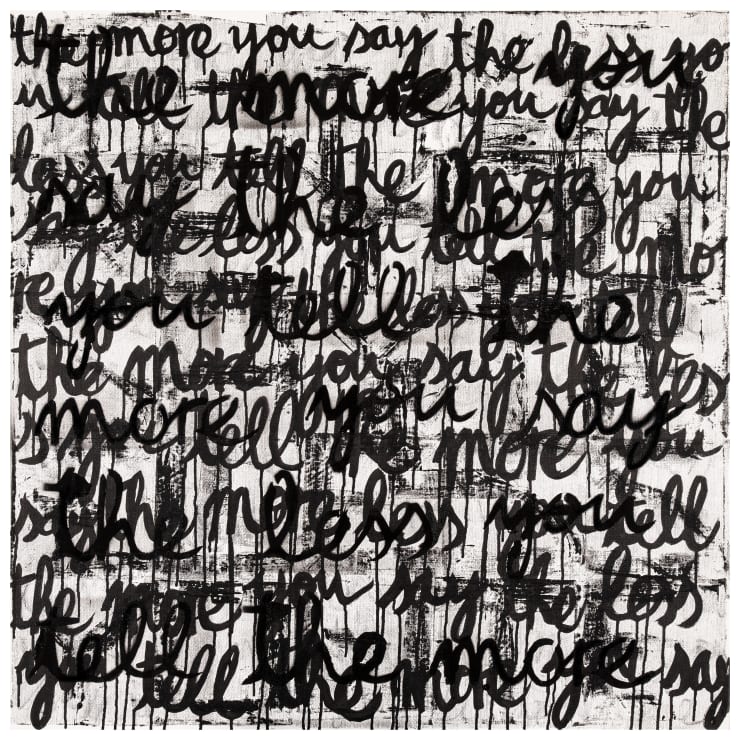 the more you say the less yo
u tell the more you say the
the more you
less you tell the more you
say the less
say the less you tell the mo
re you say the less tell
you tell the
the more you say the less
more you say
you tell the more you
say the more less you tell
the less you
the more you say the less
you tell the more say
tell the more